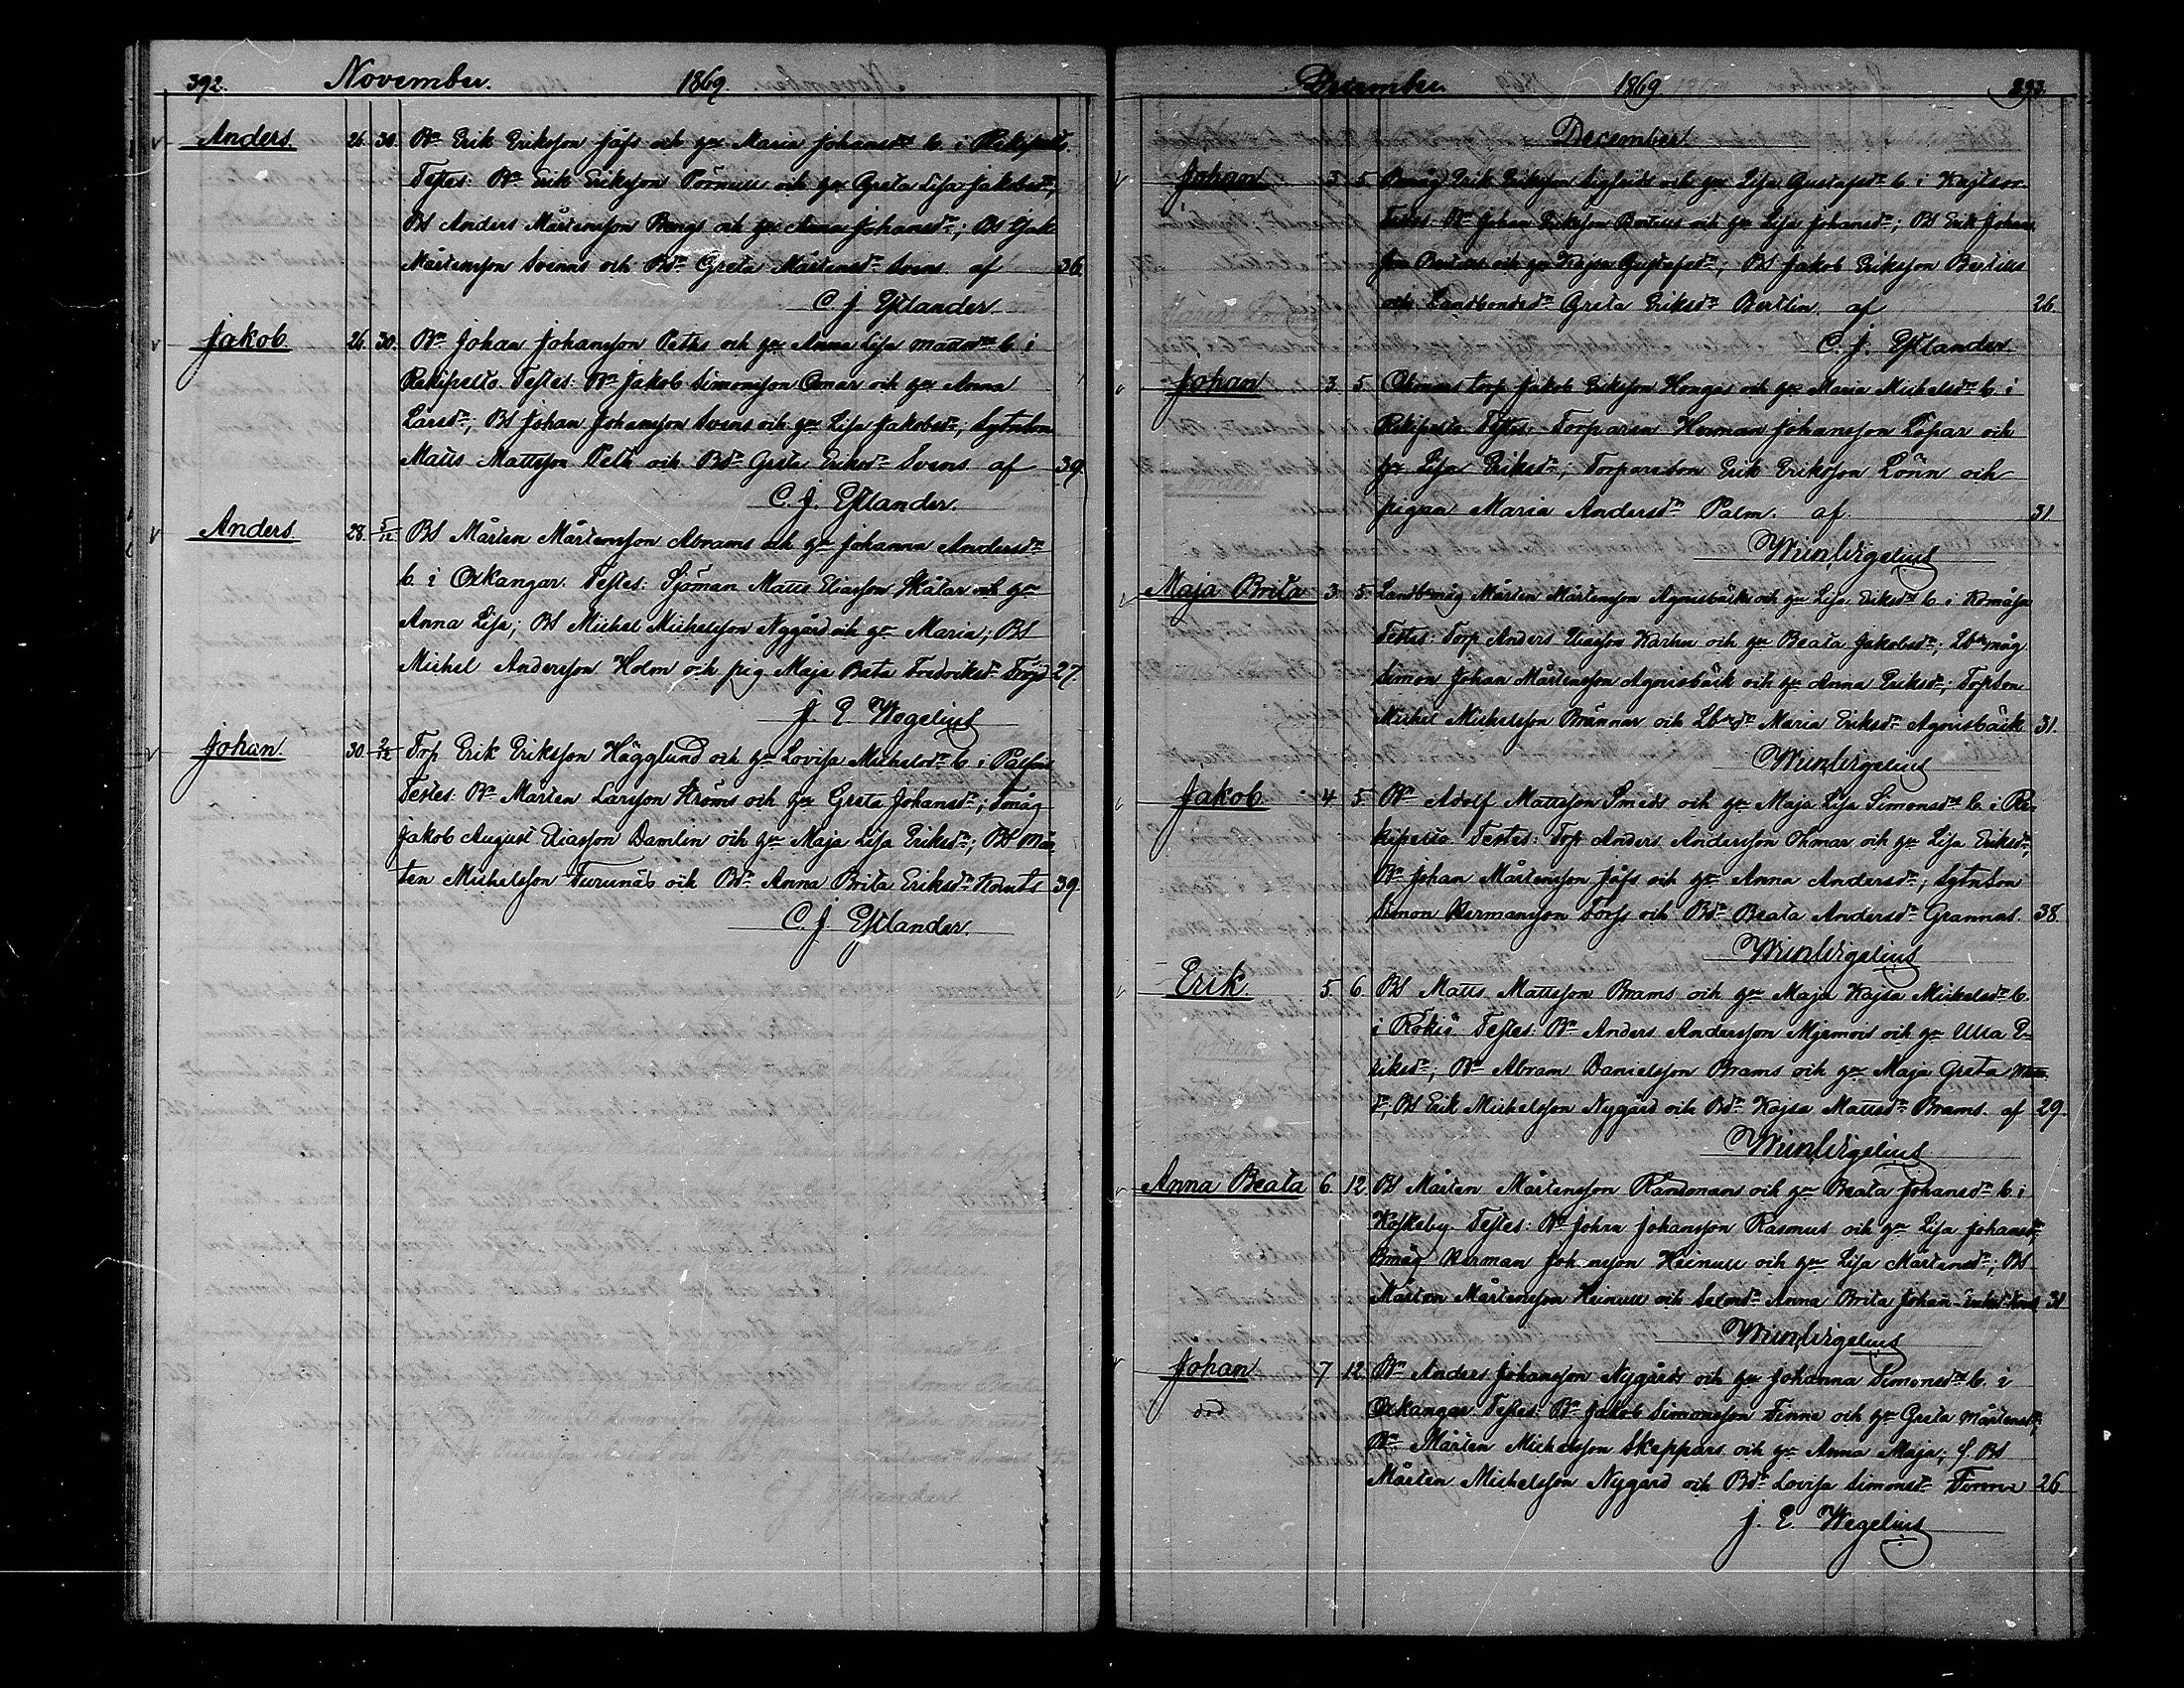 392. November. 1869.
Anders. 26. 30. Bn Erik Eriksson Jåfs och hu Maria Johansdr b. i Rekipelto.
Testes: Bn Erik Eriksson och hu Greta Lisa Jakobsdr,
BS Anders Mårtensson Bengs och hu Anna Johansdr; BS Isak
Mårtensson Svenns och Bdr Greta Mårtensdr Svens af 36.
C. J. Estlander.
Jakob 26. 30. Bn Johan Johansson Peths och hu Anna Lisa Mattsdr b. i
Rekipelto. Testes: Bn Jakob Simonsson Ohmar och hu Anna
Larsdr, BS Johan Johansson Svens och hu Lisa Jakobsdr, Sytnson
Matts Mattsson Peth och Bdr Greta Eriksdr Svens af 39.
C. J. Estlander.
Anders. 28. 5/12 BS Mårten Mårtensson Abrams och hu Johanna Andersdr
b. i Oxkangar. Testes: Sjöman Matts Eliasson Skåtar och hu
Anna Lisa; BS Michel Michelsson Nygård och hu Maria; BS
Michel Andersson Holm och pig. Maja Beata Fredriksdr Fröjd 27.
J. E. Wegelius
Johan. 30. 2/12 Trp Erik Eriksson Hägglund och hu Lovisa Michelsdr b. i
Testes: Bn Mårten Larsson Ströms och hu Greta Johansdr; Småg
Jakob August Eliasson Damlin och hu Maja Lisa Eriksdr; BS Mår-
ten Michelsson Furunäs och Bdr Anna Brita Eriksdr Knuts 39.
C. J. Estlander.
December. 1869. 393.
December.
Johan 3. 5. Bmåg Erik Eriksson Sigfrids och hu Lisa Gustafsdr b. i
Testes: Bn Johan Eriksson Bertills och hu Lisa Johansdr; BS Erik Johans
son Bertills och hu Kajsa Gustafsdr; BS Jakob Eriksson Bertills
och Landbondedr Greta Eriksdr Bertlin af 26.
C. J. Estlander.
Johan 3. 5. Ohmars torp. Jakob Eriksson Hongas och hu Maria Michelsdr b. i
Rekipelto Testes: Torparen Herman Johansson Löpar och
hu Lisa Eriksdr; Torpareson Erik Eriksson Lönn och
pigan Maria Andersdr Palm. af 31.
Wegelius
Maja Brita 3. 5. Landbmåg Mårten Mårtensson Agnisbäck och hu Lisa Eriksdr b. i Komåsa
Testes: Torp Anders Eliasson och hu Beata Jakobsdr; Lbmåg
Simon Johan Mårtensson Agnisbäck och hu Anna Eriksdr; Torpson
Michel Michelsson Brännar och Lbdr Maria Eriksdr Agnisbäck 31.
Wegelius
Jakob 4. 5. Bn Adolf Mattsson Smeds och hu Maja Lisa Simonsdr b. i Re-
kipelto Testes: Torp Anders Andersson Ohmar och hu Lisa Eriksdr,
Bn Johan Mårtensson Jåfs och hu Anna Andersdr; Sytnson
Simon Hermansson Torfs och Bdr Beata Andersdr Grannas. 38.
Wegelius
Erik. 5. 6. BS Matts Mattsson Brams och hu Maja Kajsa Michelsdr b.
i Kökiö Testes: Bn Anders Andersson Myrmois och hu Ulla E-
riksdr; Bn Abram Danielsson Brams och hu Maja Greta
dr; BS Erik Michelsson Nygård och Bdr Kajsa Mattsdr Brams. af 29.
Wegelius
Anna Beata 6. 12. BS Mårten Mårtensson och hu Beata Johansdr b. i
Koskeby. Testes: Bn Johan Johansson Rasmus och hu Lisa Johansdr,
Bmåg Herman Johansson Heinull och hu Lisa Mårtensdr; BS
Mårten Mårtensson Heinull och Anna Brita Johan 31
Wegelius
Johan 7 12. Bn Anders Johansson Nygårds och hu Johanna Simonsdr b. i
död Oxkangar Testes: Bn Jakob Simonsson Finne och hu Greta Mårtensdr,
Bn Mårten Michelsson Skeppars och hu Anna Maja; f. BS
Mårten Michelsson Nygård och Bdr Lovisa Simonsdr 26.
J. E. Wegelius